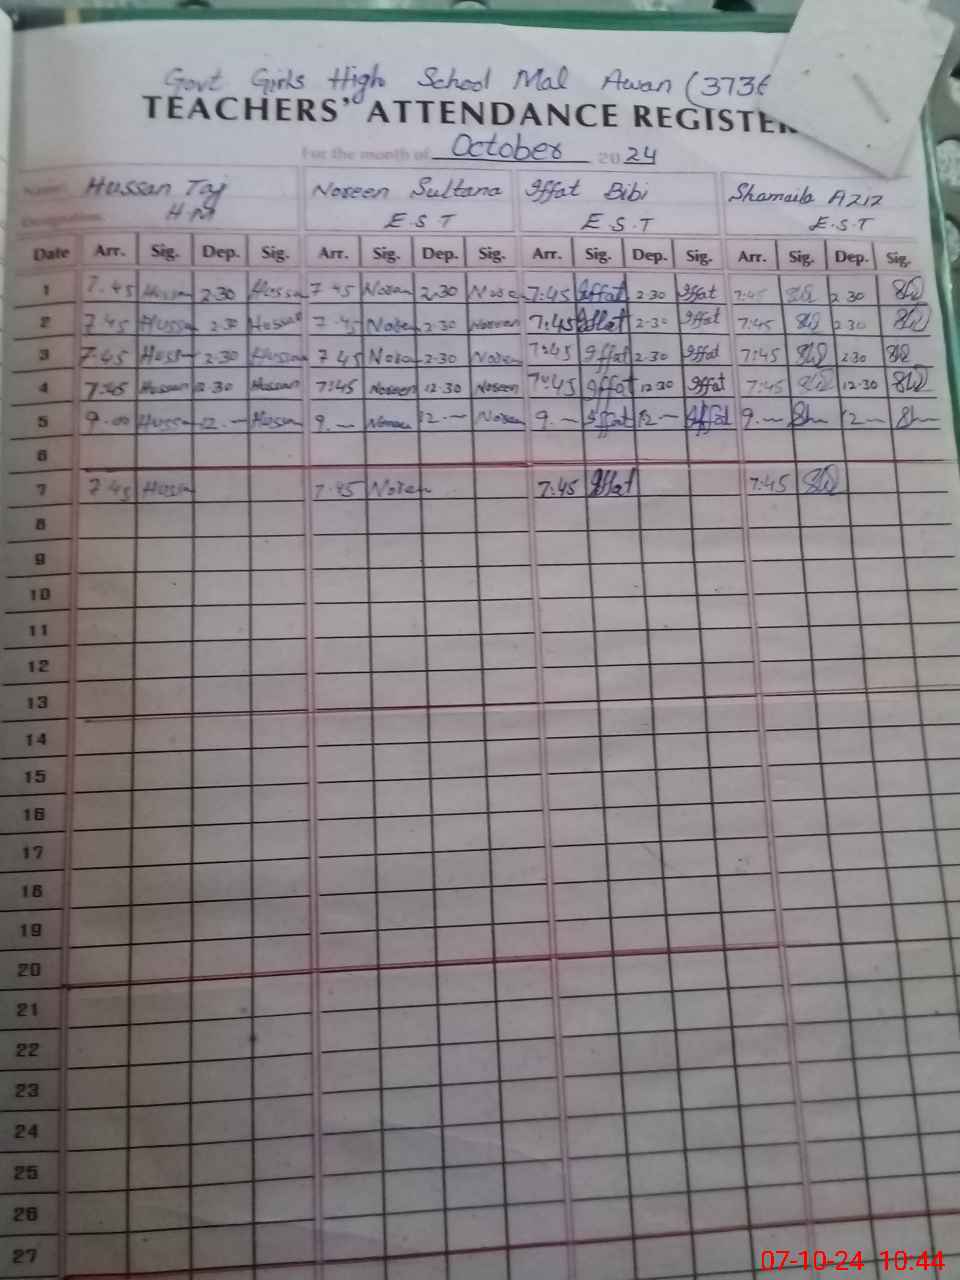 Govt Girls High School Mal Awan (3736
TEACHERS' ATTENDANCE REGISTER
For the month of October 2024
Name Hussan Taj Noreen Sultana Iffat Bibi Shamaila Aziz
Designation H.M E.S.T E.S.T E.S.T
Date Arr. Sig. Dep. Sig. Arr. Sig. Dep. Sig. Arr. Sig. Dep. Sig. Arr. Sig. Dep. Sig.
1 7.45 Hussan 2.30 Hussan 7.45 Noreen 2.30 Noreen 7:45 Iffat 2.30 Iffat 7:45 2.30
2 7.45 Hussan 2.30 Hussan 7.45 Noreen 2.30 Noreen 7:45 Iffat 2.30 Iffat 7:45 2.30
3 7.45 Hussan 2.30 Hussan 7.45 Noreen 2.30 Noreen 7:45 Iffat 2.30 Iffat 7:45 2.30
4 7:45 Hussan 12.30 Hussan 7:45 Noreen 12.30 Noreen 7:45 Iffat 12.30 Iffat 7:45 12.30
5 9.00 Hussan 12.— Hussan 9.— Noreen 12.— Noreen 9.— Iffat 12— Iffat 9.— 12—
6
7 7.45 Hussan 7.45 Noreen 7:45 Iffat 7:45
8
9
10
11
12
13
14
15
16
17
18
19
20
21
22
23
24
25
26
27
07-10-24 10:44